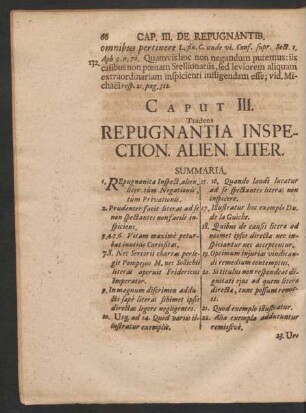 66 CAP. III. DE REPUGNANTIB,
omnibus pertinere L. fin. C. unde vi. Conf. supr. Sect. 1.
Aph 9. n. 72. Quamvis hoc non negandum putemus: iis
132. casibus non poenam Stellionatus, sed leviorem aliquam
extraordinariam inspicienti infligendam esse; vid. Mi-
chael resp. 21. pag. 312.
CAPUT III.
Tradens
REPUGNANTIA INSPE-
CTION. ALIEN. LITER.
SUMMARIA.
1. REpugnantia Inspect. alien.
liter. tùm Negationis,
tùm Privationis.
2. Prudenter facit literas ad se
non spectantes non facile in-
spiciens,
3. 4. 5. 6. Vitam maximè petur-
bat inutilis Curiositas.
7. 8. Nec Sertorii chartas perle-
git Pompejus M. nec Solichii
literas aperuit Fridericus
Imperator.
9. In magnum discrimen addu-
cti sæpè literas sibimet ipsis
directas legere negligentes.
10. Usq. ad 14. Quod variis il-
lustratur exemplis.
15. 16. Quando laudi ducatur
ad se spectantes literas non
inspicere.
17. Illustratur hic exemplo Du.
de la Guiche.
18. Quibus de causis literæ ad
nosmet ipsos directæ nec in-
spiciantur nec acceptentur.
19. Optimum injurias vindican-
di remedium contemptus.
20. Si titulus non respondeat di-
gnitati ejus ad quem literæ
directæ, tunc possunt remit-
ti.
21. Quod exemplo illustratur.
22. Alia exempla adducuntur
remissivè.
23. Uti